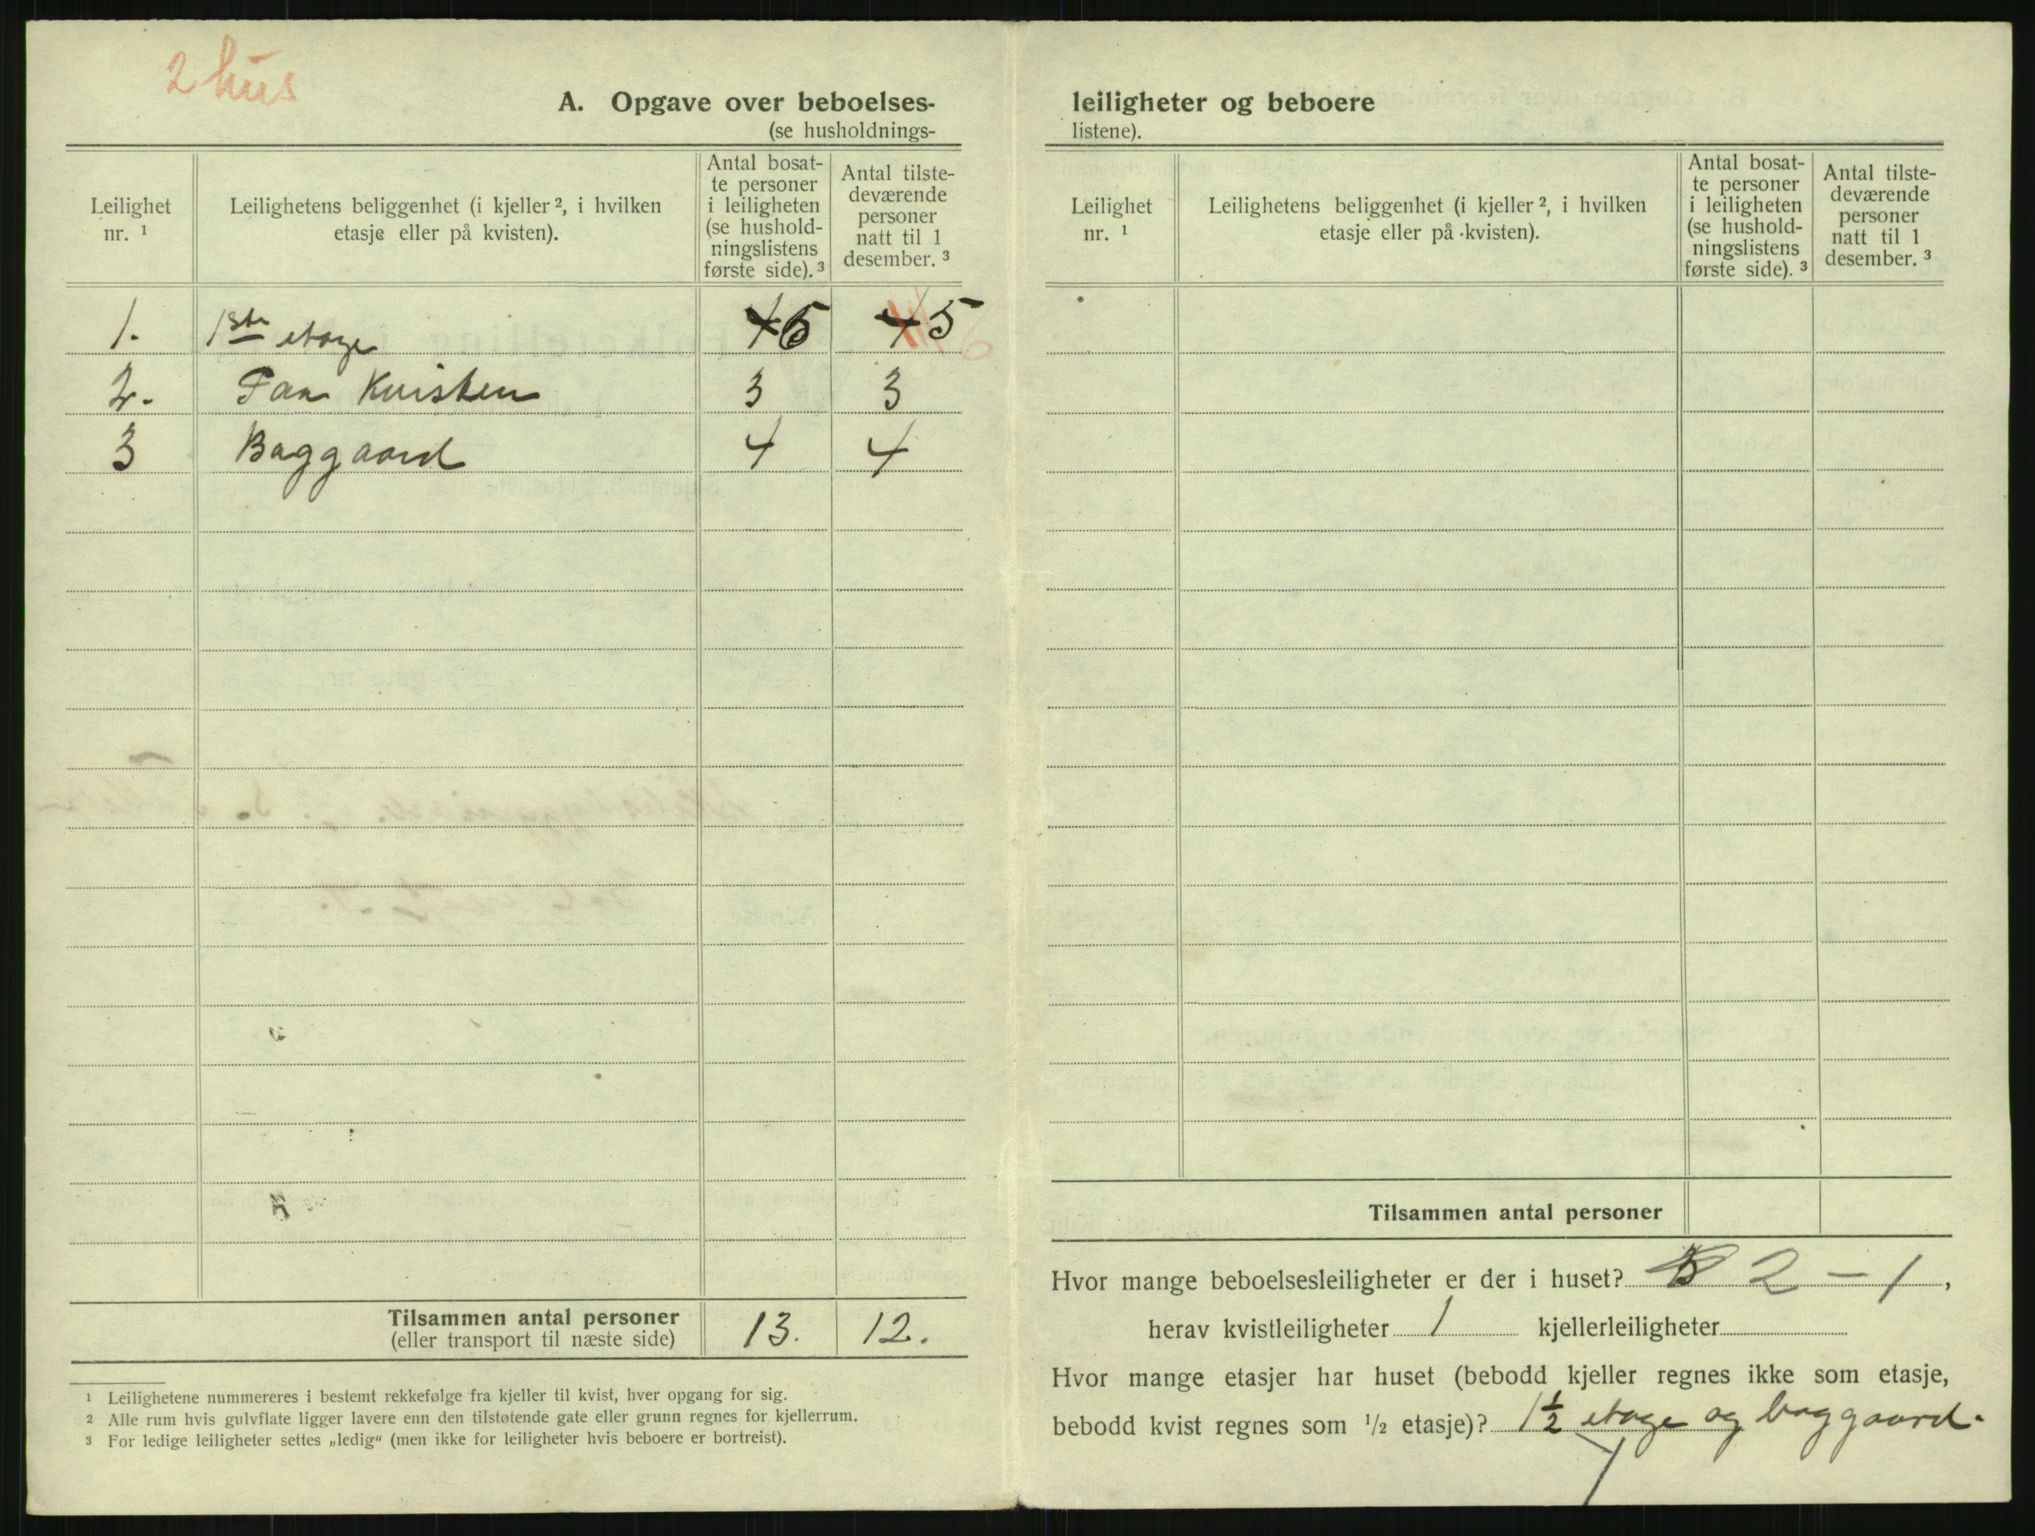 2 hus
A. Opgave over beboelses-
(se husholdnings-
Leilighet nr. ¹
Leilighetens beliggenhet (i kjeller ², i hvilken etasje eller på kvisten).
Antal bosat-te personer i leiligheten (se hushold-ningslistens første side). ³
Antal tilste-deværende personer natt til 1 desember. ³
1. 1ste etage 4 6 4 5
2. Paa Kvisten 3 3
3 Baggaard 4 4
Tilsammen antal personer 13. 12.
(eller transport til næste side)
¹ Leilighetene nummereres i bestemt rekkefølge fra kjeller til kvist, hver opgang for sig.
² Alle rum hvis gulvflate ligger lavere enn den tilstøtende gate eller grunn regnes for kjellerrum.
³ For ledige leiligheter settes „ledig“ (men ikke for leiligheter hvis beboere er bortreist).
leiligheter og beboere
listene).
Leilighet nr. ¹
Leilighetens beliggenhet (i kjeller ², i hvilken etasje eller på kvisten).
Antal bosat-te personer i leiligheten (se hushold-ningslistens første side). ³
Antal tilste-deværende personer natt til 1 desember. ³
Tilsammen antal personer
Hvor mange beboelsesleiligheter er der i huset? 2 - 1,
herav kvistleiligheter 1 kjellerleiligheter
Hvor mange etasjer har huset (bebodd kjeller regnes ikke som etasje,
bebodd kvist regnes som ½ etasje)? 1½ etage og baggaard.
1